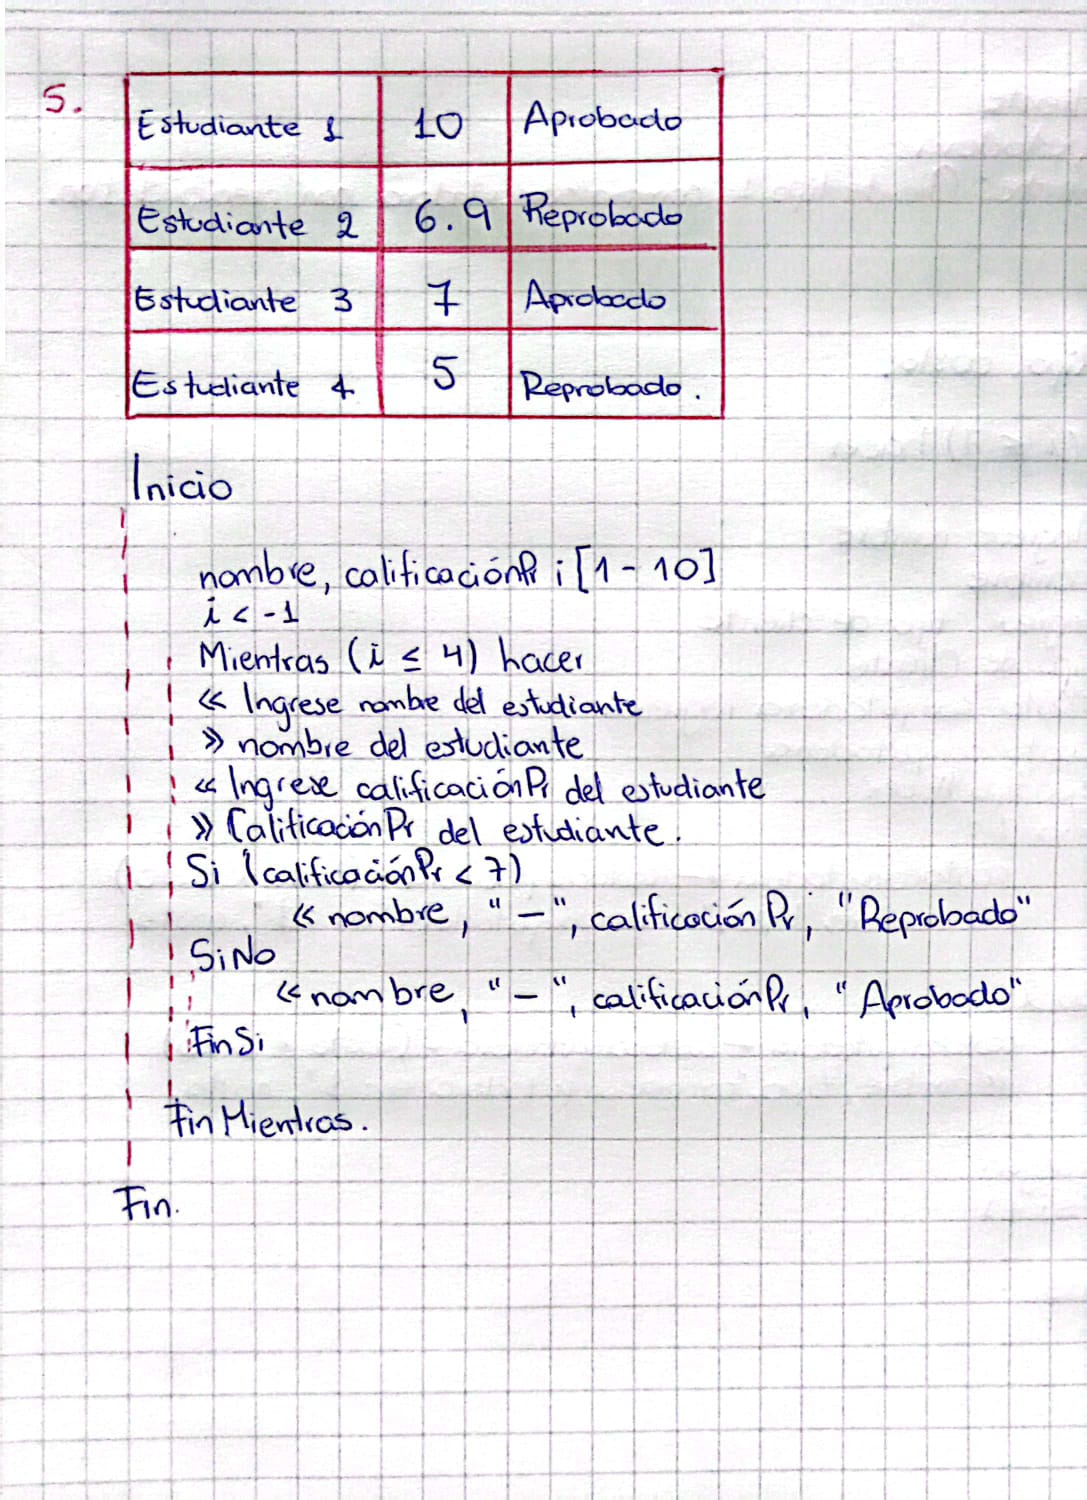 5.
Estudiante 1 10 Aprobado
Estudiante 2 6.9 Reprobado
Estudiante 3 7 Aprobado
Estudiante 4 5 Reprobado.
Inicio
nombre, calificaciónPr i [1 - 10]
i < -1
Mientras (i ≤ 4) hacer
<< Ingrese nombre del estudiante
>> nombre del estudiante
<< Ingrese calificaciónPr del estudiante
>> CalificaciónPr del estudiante.
Si (calificaciónPr < 7)
<< nombre, "-", calificaciónPr, "Reprobado"
SiNo
<< nombre, "-", calificaciónPr, "Aprobado"
FinSi
Fin Mientras.
Fin.